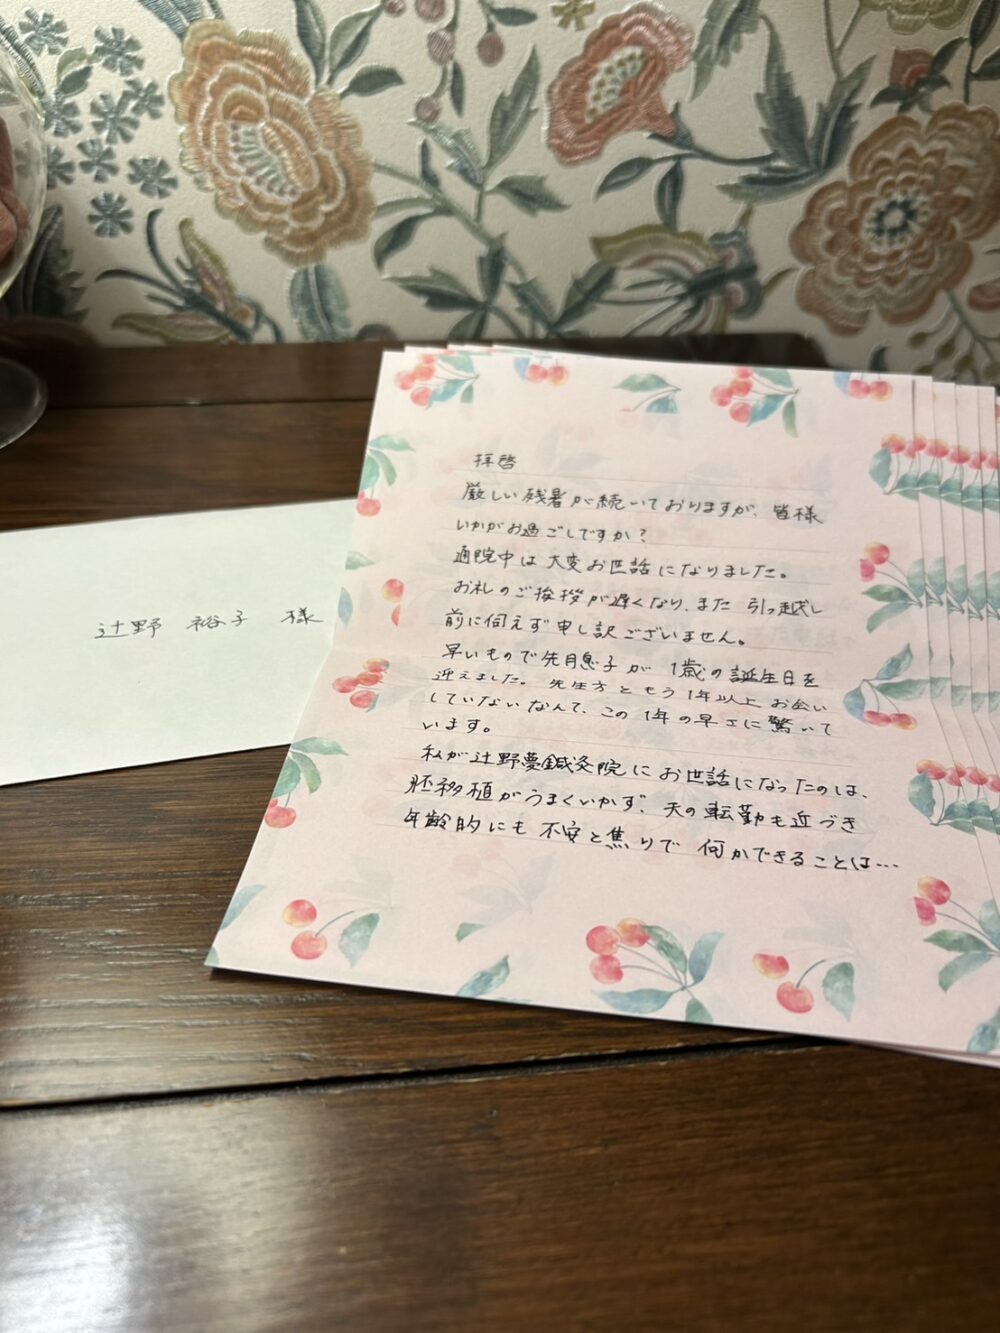 辻野 裕子 様
拝啓
厳しい残暑が続いておりますが、皆様
いかがお過ごしですか？
通院中は大変お世話になりました。
お礼のご挨拶が遅くなり、また引っ越し
前に伺えず申し訳ございません。
早いもので先月息子が1歳の誕生日を
迎えました。先生方ともう1年以上お会い
していないなんて、この1年の早さに驚いて
います。
私が辻野夢鍼灸院にお世話になったのは、
胚移植がうまくいかず、夫の転勤も近づき
年齢的にも不安と焦りで何かできることは…